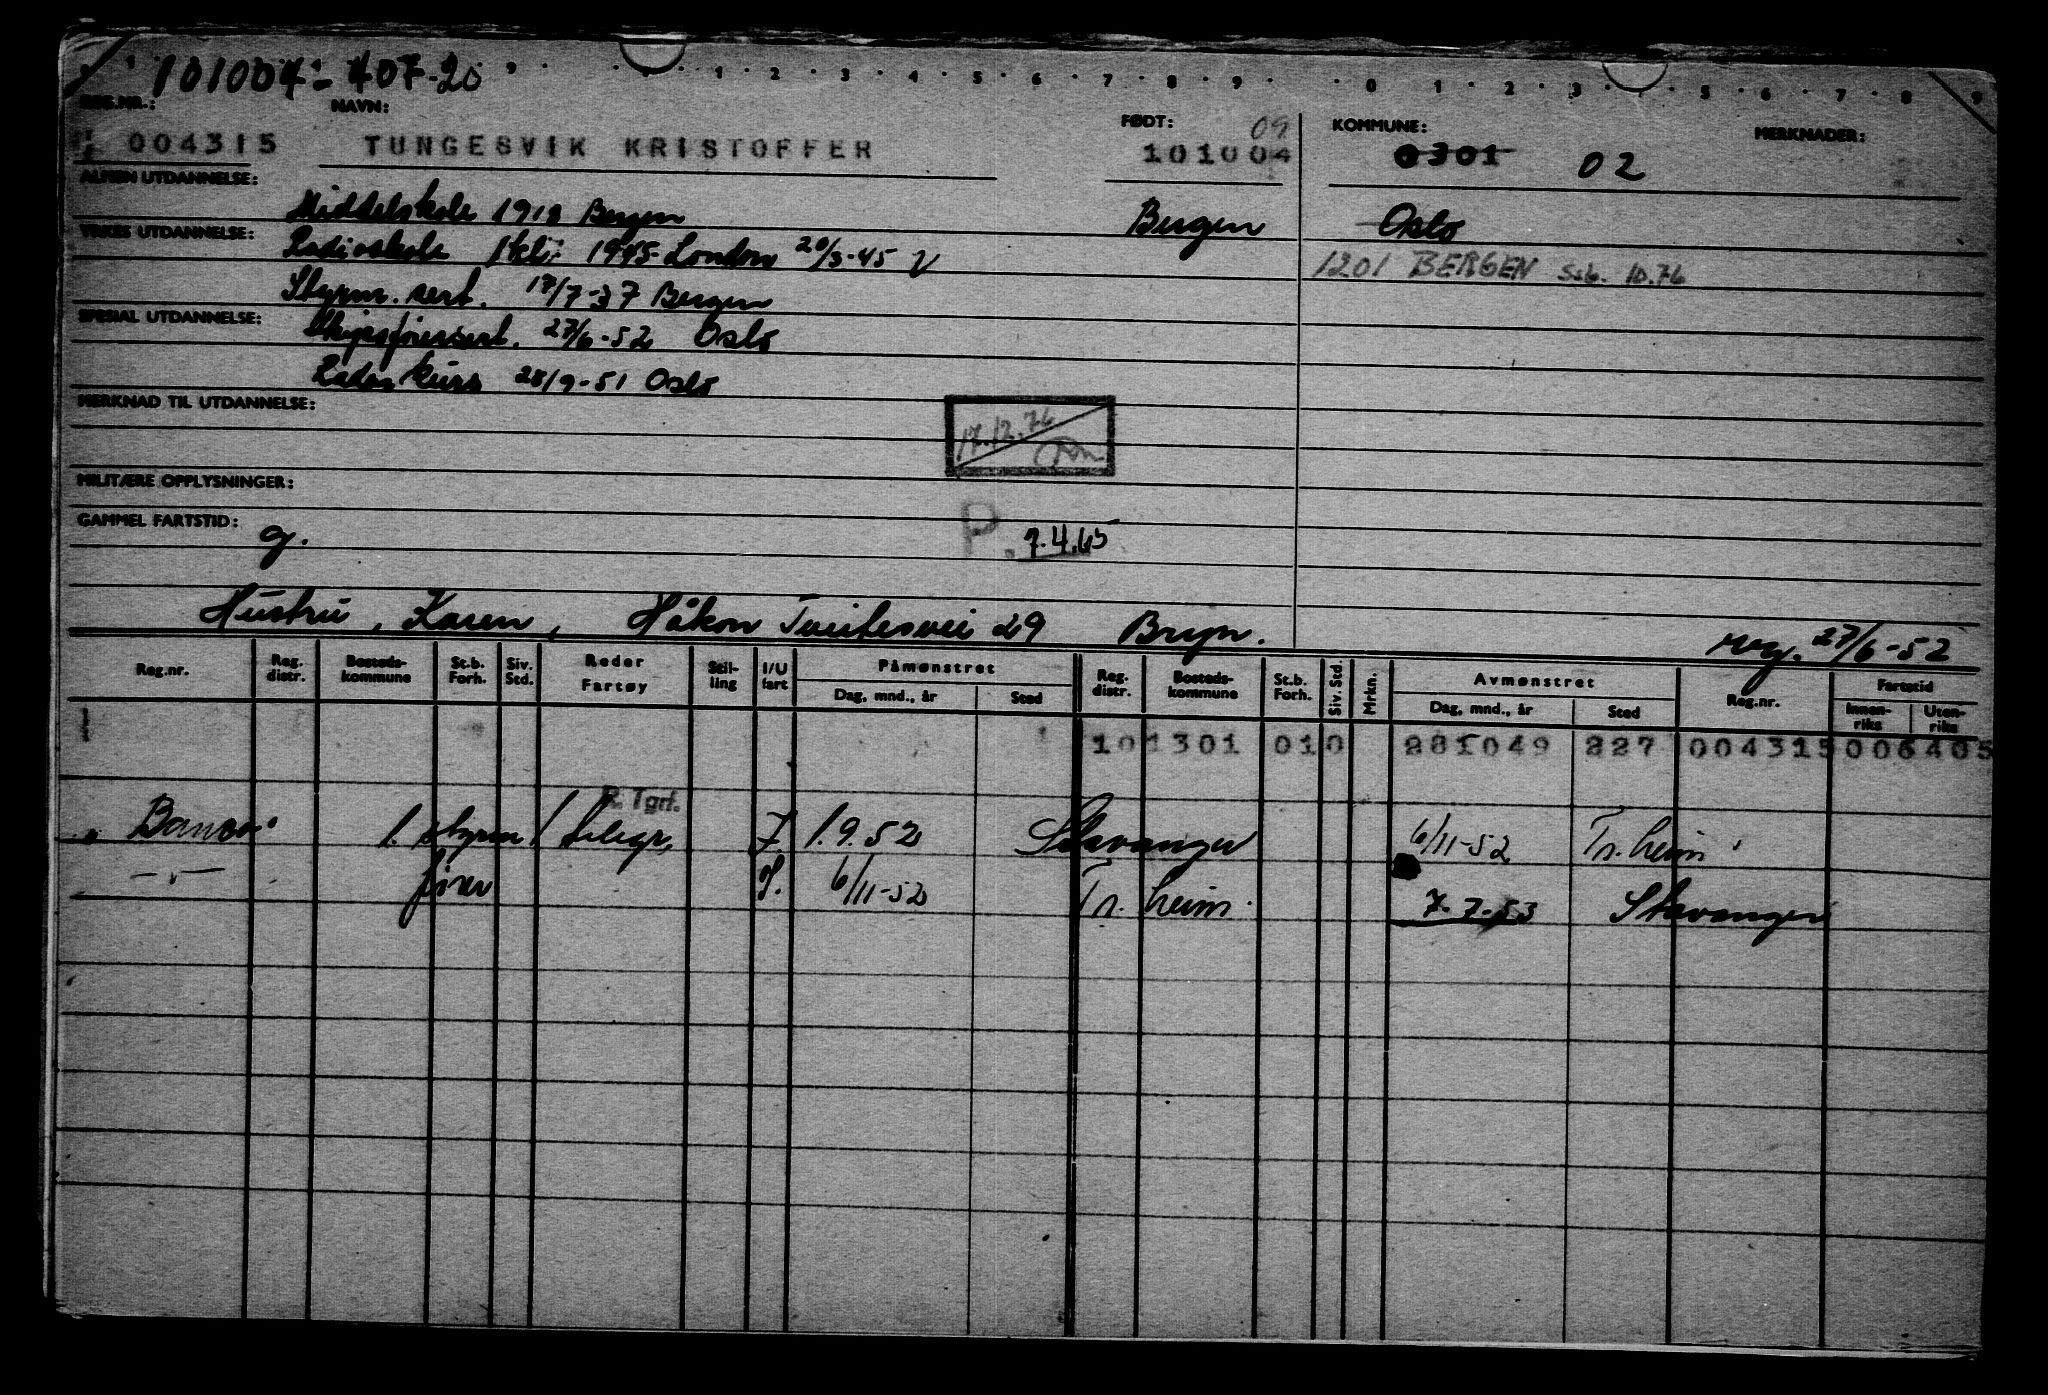 101004-407-20
0 1 2 3 4 5 6 7 8 9 0 1 2 3 4 5 6 7 8 9
REG.NR.: NAVN: FØDT: 09 KOMMUNE: MERKNADER:
004315 TUNGESVIK KRISTOFFER 101004 0301 02
ALMEN UTDANNELSE: Middelskole 1919 Bergen Bergen Oslo
YRKES UTDANNELSE: Radioskole 1 kl. 1945 London 20/3-45 V 1201 BERGEN Ssb. 10.76
Styrm. sert. 17/7-37 Bergen
SPESIAL UTDANNELSE: Skipsførersert. 27/6-52 Oslo
Radar kurs 28/9-51 Oslo
MERKNAD TIL UTDANNELSE:
17.12.76
MILITÆRE OPPLYSNINGER:
GAMMEL FARTSTID: g. P. 7.4.65
Hustru, Karen, Håkon Tveitesvei 29 Bryn. reg. 27/6-52
Reg.nr. Reg. distr. Bosteds-kommune St.b. Forh. Siv. Std. Reder Fartøy Stil-ling I/U fart Påmønstret Dag, mnd., år Sted Reg. distr. Bosteds-kommune St.b. Forh. Siv. Std. Mrkn. Avmønstret Dag, mnd., år Sted Reg.nr. Fartstid Innen-riks Uten-riks
101301 010 281049 227 004315 006405
R. Tgrf.
1. styrm / telegr. 1.9.52 Stavanger 6/11-52 Tr.heim
fører 6/11-52 Tr.heim 7-7-53 Stavanger